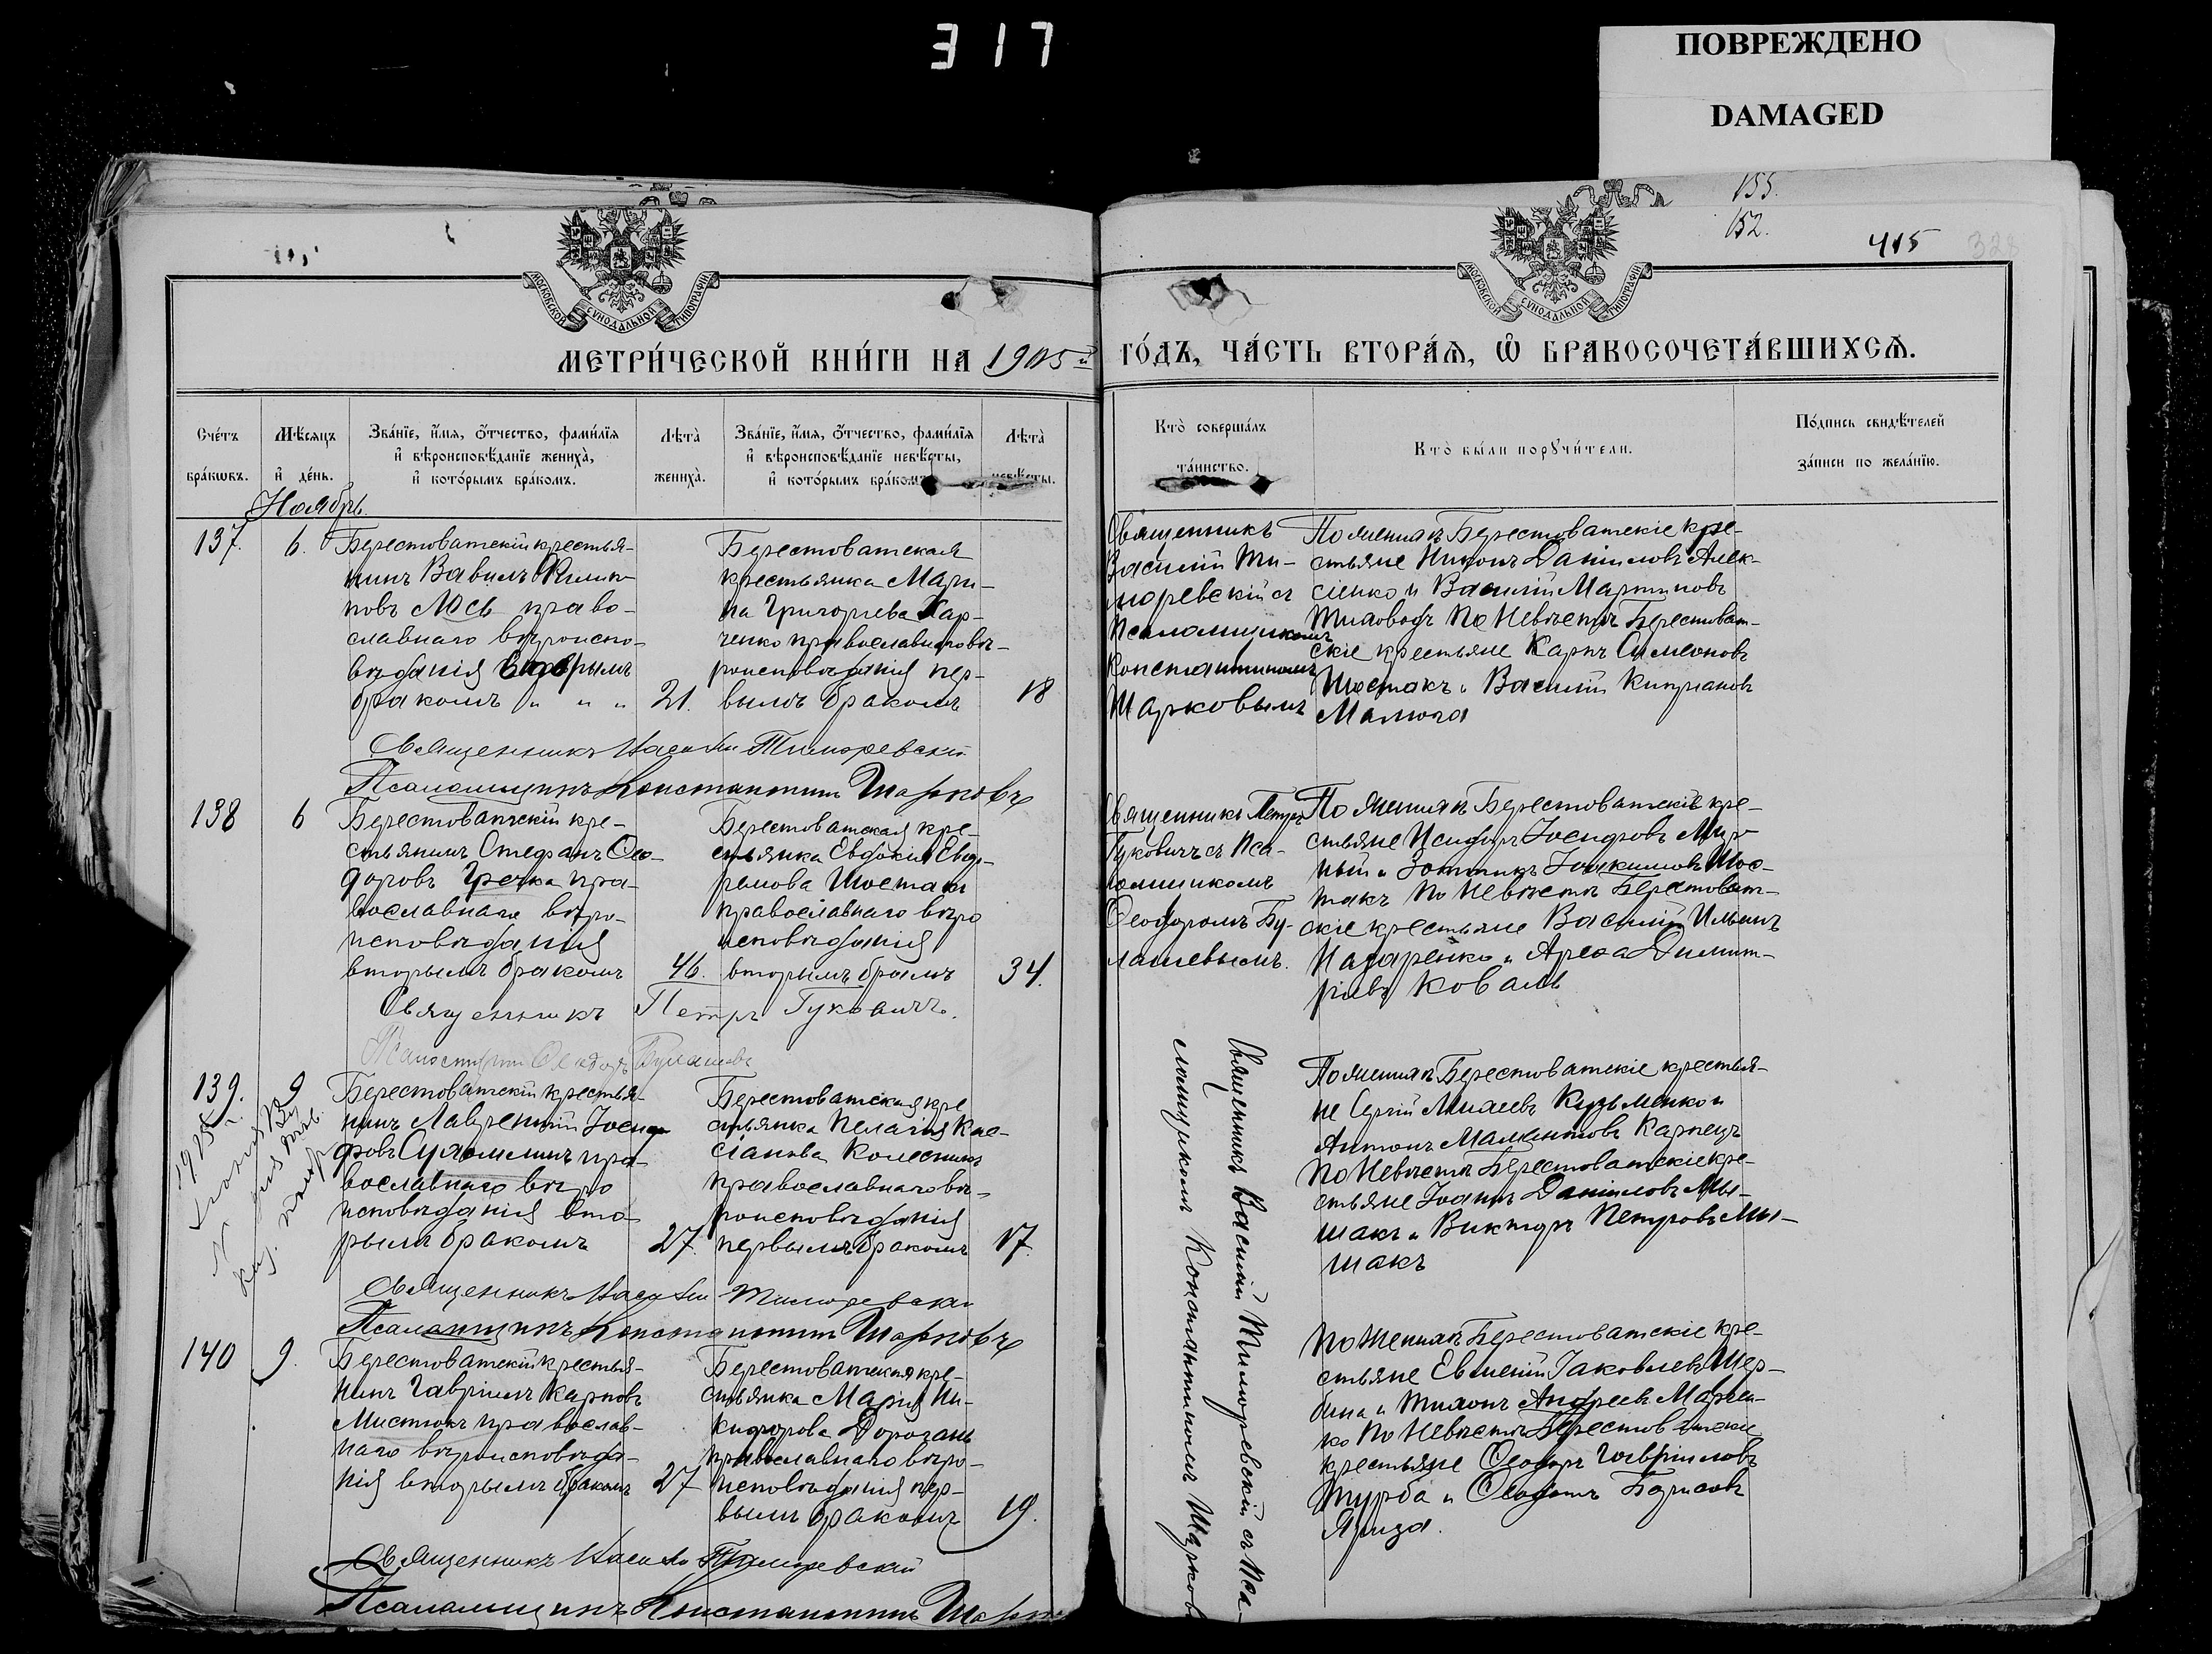 317
ПОВРЕЖДЕНО
DAMAGED
155.
152.
415
МОСКОВСКОЙ СѴНОДАЛЬНОЙ ТИПОГРАФІИ
МОСКОВСКОЙ СѴНОДАЛЬНОЙ ТИПОГРАФІИ
МЕТРИ́ЧЕСКОЙ КНИ́ГИ НА 1905й ГО́ДЪ, ЧА́СТЬ ВТОРА́Я, Ѡ҆ БРАКОСОЧЕТА́ВШИХСЯ.
Сче́тъ бра́кѡвъ.
Мѣ́сяцъ и҆ де́нь.
Зва́нїе, и҆́мя, ѻ҆́тчество, фами́лїя и҆ вѣроисповѣ́данїе жениха̀, и҆ кото́рымъ бра́комъ.
Лѣта̀ жениха̀.
Зва́нїе, и҆́мя, ѻ҆́тчество, фами́лїя и҆ вѣроисповѣ́данїе невѣ́сты, и҆ кото́рымъ бра́комъ
Лѣта̀ невѣ́сты.
Кто̀ соверша́лъ та́инство.
Кто̀ бы́ли порꙋчи́тели.
По́дпись свидѣ́телей за́писи по жела́нїю.
Ноябрь.
137.
6.
Берестоватскій крестья-
нинъ Вавилъ Филип-
повъ Лось право-
славнаго вѣроиспо-
вѣданія вторымъ
бракомъ " " "
21.
Берестоватская
крестьянка Мари-
на Григорьева Хар-
ченко православнаго вѣ-
роисповѣданія пер-
вымъ бракомъ
18
Священникъ
Василій Ти-
моревскій съ
псаломщикомъ
Константиномъ
Шарковымъ
По женихѣ Берестоватскіе кре-
стьяне Никонъ Даніиловъ Алек-
сіенко и Василій Мартиновъ
Тиховодъ По Невѣстѣ Берестоват-
скіе крестьяне Карпъ Симеоновъ
Шостакъ и Василій Кипріановъ
Малюга
Священникъ Василій Тиморевскій
Псаломщикъ Константинъ Шарковъ
138
6
Берестоватскій кре-
стьянинъ Стефанъ Ѳео-
доровъ Гречка пра-
вославнаго вѣро-
исповѣданія
вторымъ бракомъ
46.
Берестоватская кре-
стьянка Евдокія Евдо-
кимова Шостакъ
православнаго вѣро
исповѣданія
вторымъ бракомъ
34.
Священникъ Петръ
Гуковичъ съ Пса-
ломщикомъ
Ѳеодоромъ Бу-
лашевымъ.
По Женихѣ Берестоватскіе кре-
стьяне Исидоръ Іосифовъ Мир-
ный и Зотикъ Іоакимовъ Шос-
такъ по Невѣстѣ Берестоват-
скіе крестьяне Василій Ильинъ
Назаренко и Ареѳа Димит-
ріевъ Коваль
Священникъ Петръ Гуковичъ.
Псаломщикъ Ѳеодоръ Булашевъ
139.
9
Берестоватскій крестья-
нинъ Лаврентій Іоси-
фовъ Суломинъ пра-
вославнаго вѣро
исповѣданія вто-
рымъ бракомъ
27.
Берестоватская кре
стьянка Пелагія Кас-
сіанова Колесникъ
православнаго вѣ-
роисповѣданія
первымъ бракомъ
17.
Священникъ Василій Тиморевскій съ Пса-
ломщикомъ Константиномъ Шарков
По женихѣ Берестоватскіе крестья-
не Сергій Минаевъ Кузьменко и
Антонъ Мамантовъ Карпецъ
По Невѣстѣ Берестоватскіе кре-
стьяне Іоаннъ Даніиловъ Мы-
шакъ и Викторъ Петровъ Мы-
шакъ
Священникъ Василій Тиморевскій
Псаломщикъ Константинъ Шарковъ
140
9.
Берестоватскій крестья-
нинъ Гавріилъ Карповъ
Мистюкъ православ-
наго вѣроисповѣда-
нія вторымъ бракомъ
27
Берестоватская кре-
стьянка Марія Ни-
кифорова Дорогань
православнаго вѣро-
исповѣданія пер-
вымъ бракомъ
19.
По Женихѣ Берестоватскіе кре-
стьяне Евгеній Іаковлевъ Щер-
бина и Тихонъ Андреевъ Марчен-
ко По Невѣстѣ Берестоватскіе
крестьяне Ѳеодоръ Гавріиловъ
Турба и Ѳеодотъ Борисовъ
Ярига.
Священникъ Василій Тиморевскій
Псаломщикъ Константинъ Шарк